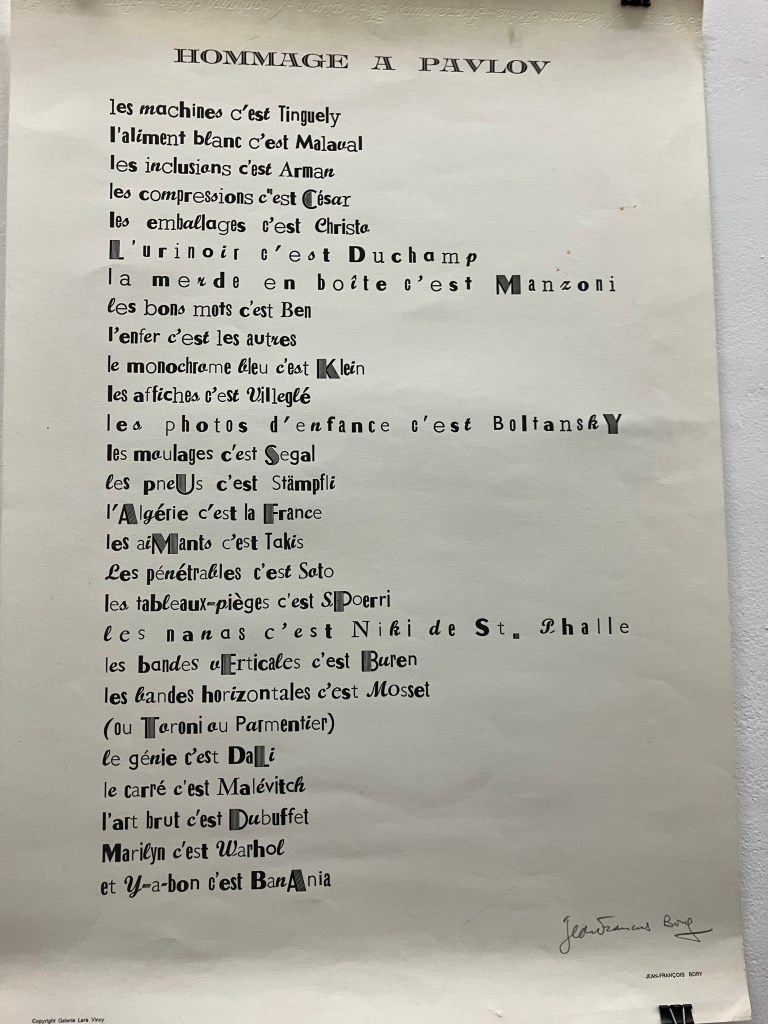 HOMMAGE A PAVLOV
les machines c'est Tinguely
l'aliment blanc c'est Malaval
les inclusions c'est Arman
les compressions c"est César
les emballages c'est Christo
L'urinoir c'est Duchamp
la merde en boîte c'est Manzoni
les bons mots c'est Ben
l'enfer c'est les autres
le monochrome bleu c'est Klein
les affiches c'est Villeglé
les photos d'enfance c'est BoltanskY
les moulages c'est Segal
les pneUs c'est Stämpfli
l'Algérie c'est la France
les aiMants c'est Takis
Les pénétrables c'est Soto
les tableaux-pièges c'est SPoerri
les nanas c'est Niki de St. Phalle
les bandes vErticales c'est Buren
les bandes horizontales c'est Mosset
(ou Toroni ou Parmentier)
le génie c'est DaLi
le carré c'est Malévitch
l'art brut c'est Dubuffet
Marilyn c'est Warhol
et Y-a-bon c'est BanAnia
Jean François Bory
JEAN-FRANÇOIS BORY
Copyright Galerie Lara Vincy